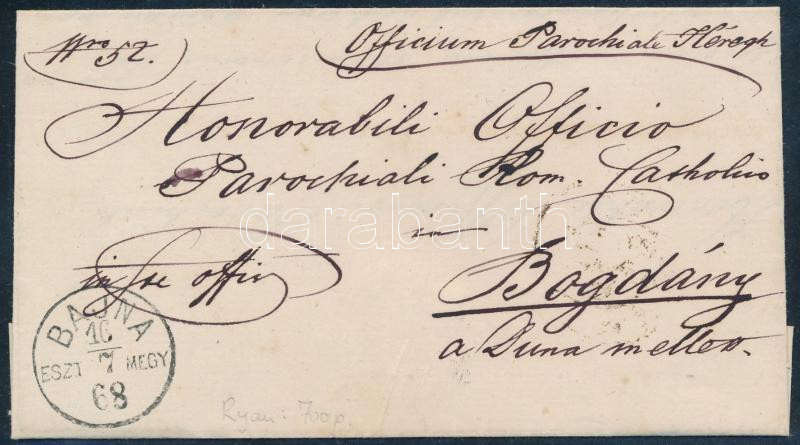 Nro 52.
Officium Parochiale Héregh
Honorabili Officio
Parochiali Rom. Catholico
in
in Soe offio
Bogdány
a Duna mellett.
BAJNA
16
7
ESZT MEGY
68
Ryan: 700p.
darabanth